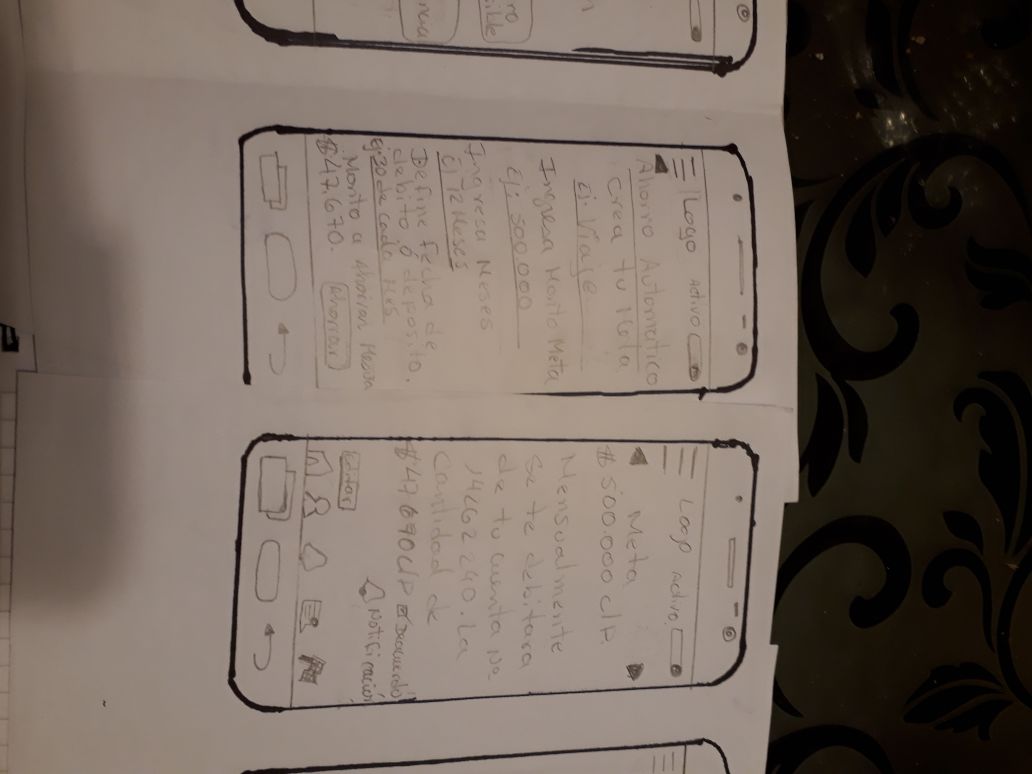 ro
ible
Logo Activo
Ahorro Automatico
Crea tu Meta
ej: Viaje
Ingresa Monto Meta
ej: 500.000
Ingresa Meses
ej 12 Meses
Define fecha de
debito o deposito.
ej: 30 de cada Mes
Monto a Ahorrar
$47.670. Ahorrar
Logo Activo.
Meta
$500.000 CLP
Mensualmente
se te debitara
de tu cuenta No
14662240. La
Cantidad de
$47.690 CLP
Notificación
Editar